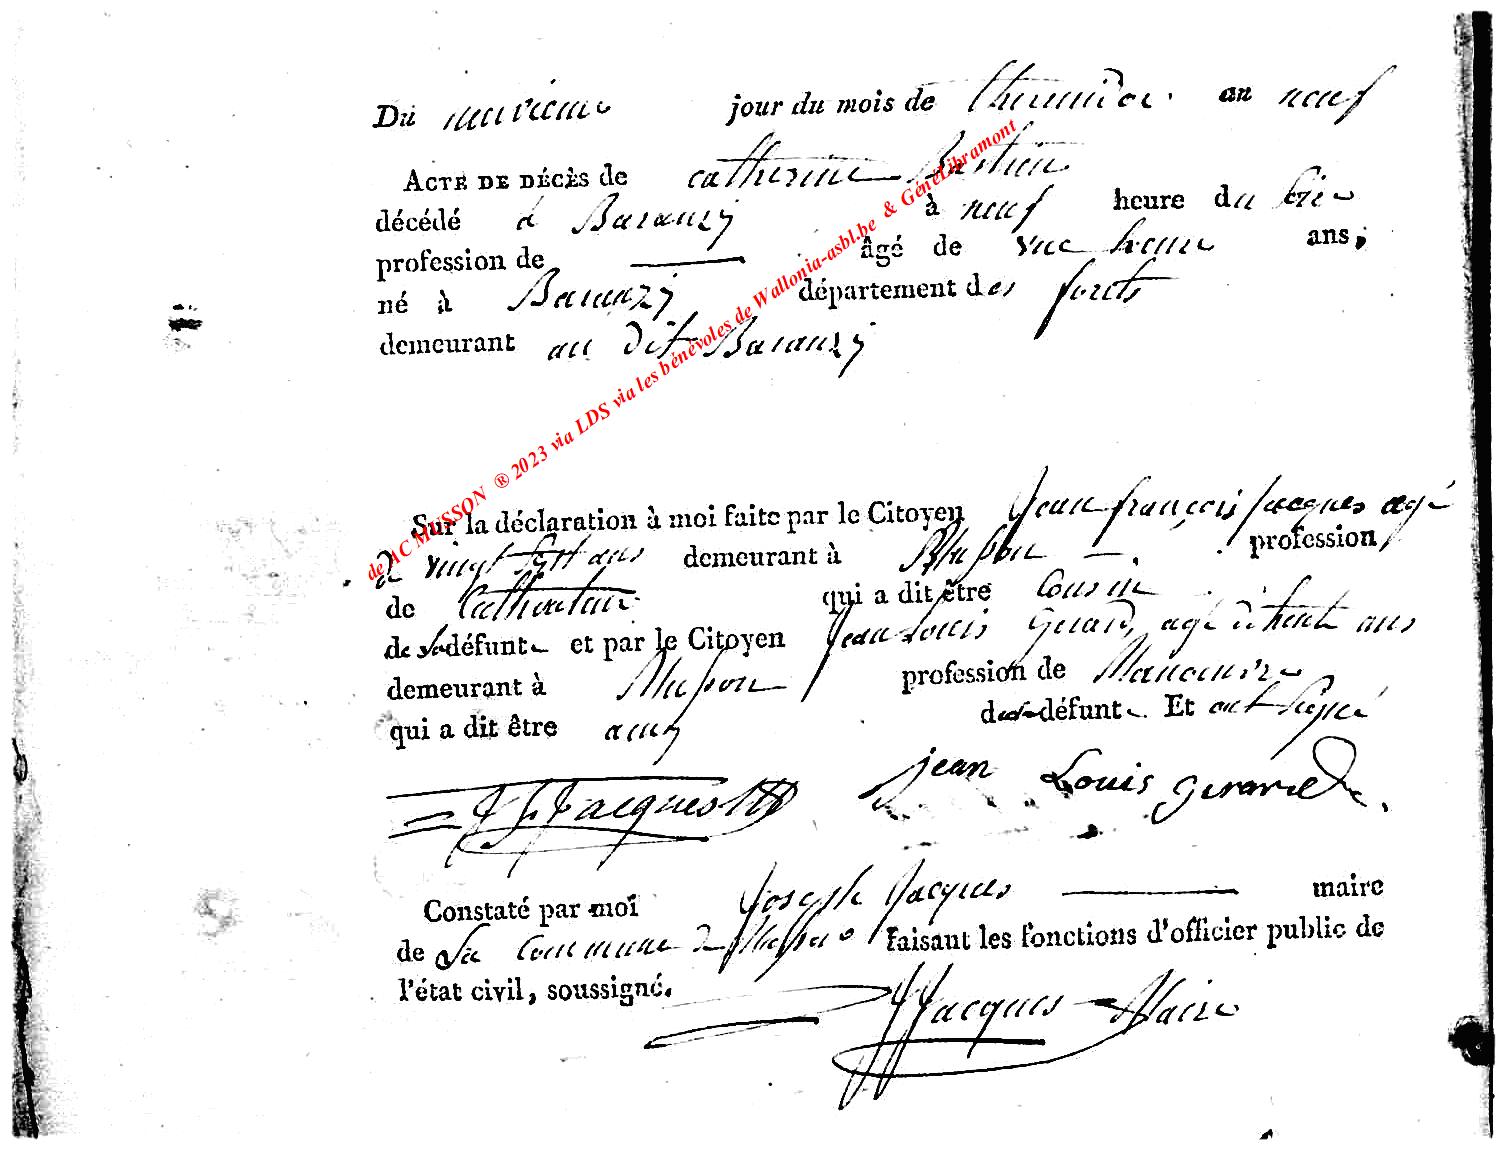 Du neuvieme jour du mois de thermidor an neuf
ACTE DE DÉCÈS de catherine Bastien
décédé à Baranzy à neuf heure du soir
profession de — âgé de une heure ans,
né à Baranzy département des forets
demeurant au dit Baranzy
Sur la déclaration à moi faite par le Citoyen Jean françois Jacques agé
de vingt sept ans demeurant à Musson — profession
de Cultivateur qui a dit être Cousin
de la défunte et par le Citoyen Jean Louis Girard, agé de trente ans
demeurant à Musson profession de Manoeuvre
qui a dit être amy de la défunte. Et ont signé
JF Jacques jean Louis gerard
Constaté par moi Joseph Jacques — maire
de La commune de Musson faisant les fonctions d'officier public de
l'état civil, soussigné.
JJacques Maire
de AC MUSSON ® 2023 via LDS via les bénévoles de Wallonia-asbl.be & GénéLibramont